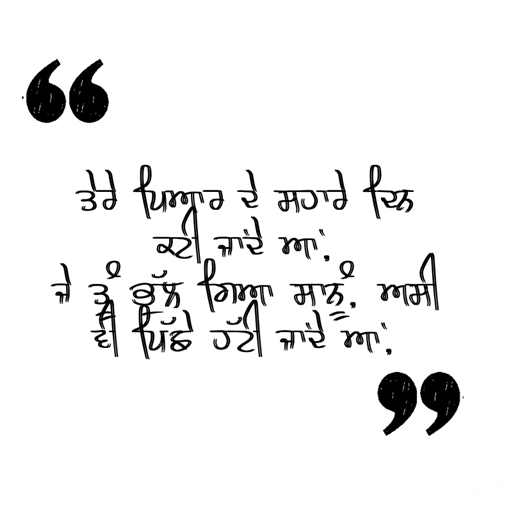 ਤੇਰੇ ਪਿਆਰ ਦੇ ਸਹਾਰੇ ਦਿਨ
ਕਟੀ ਜਾਂਦੇ ਆਂ,
ਜੇ ਤੂੰ ਭੁੱਲ ਗਿਆ ਸਾਨੂੰ, ਅਸੀ
ਵੀ ਪਿੱਛੇ ਹੱਟੀ ਜਾਂਦੇ ਆਂ,